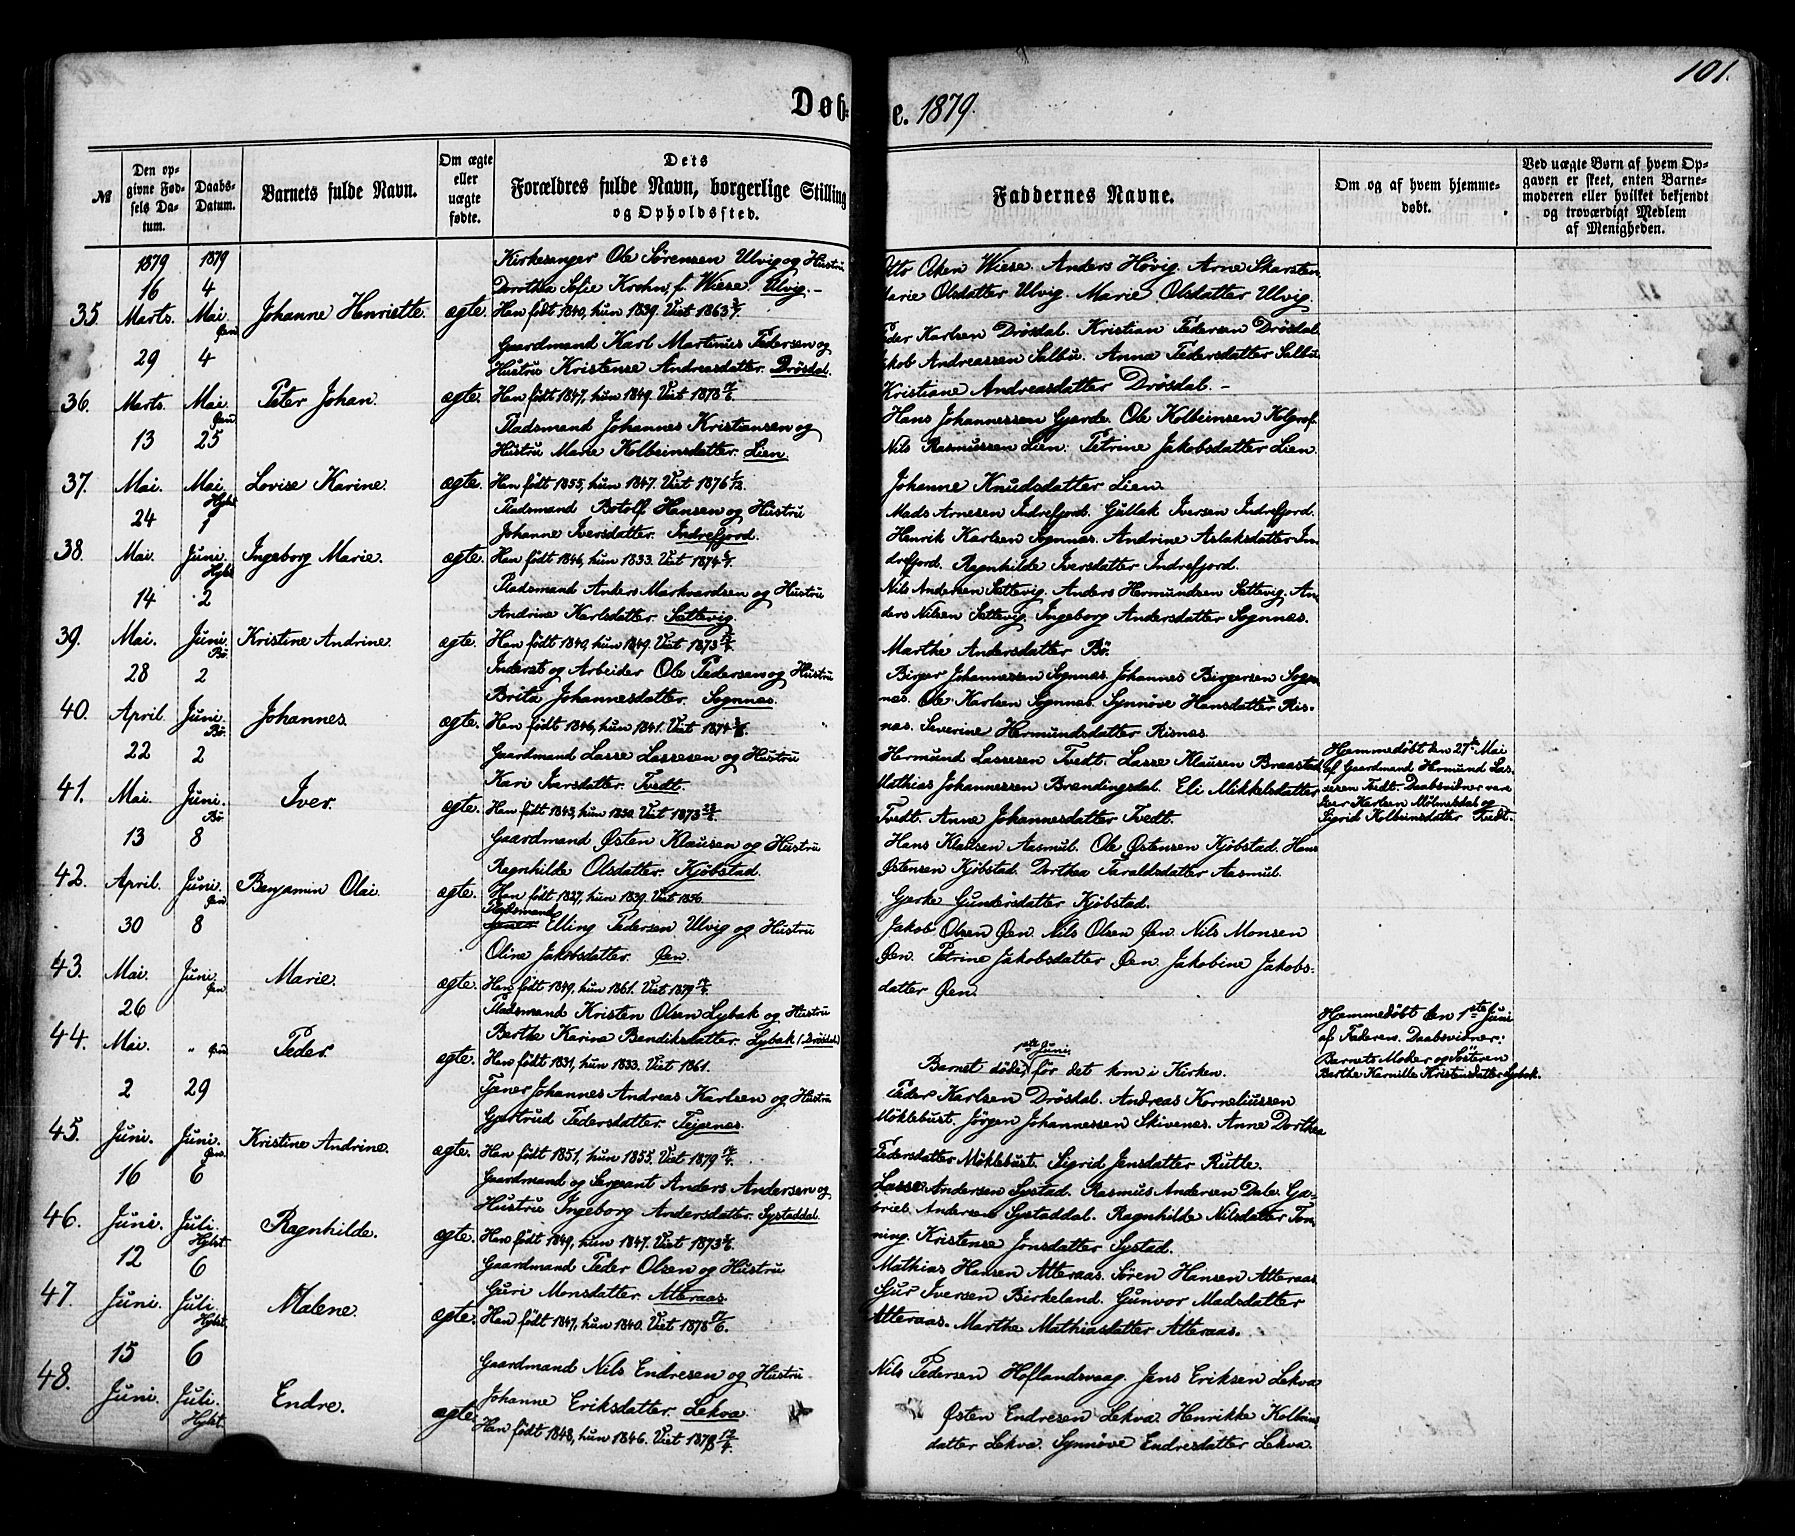 101.
Døb- e. 1879.
№
Den opgivne Fødsels Datum.
Daabs-Datum.
Barnets fulde Navn.
Om ægte eller uægte fødte.
Dets
Forældres fulde Navn, borgerlige Stilling
og Opholdssted.
Faddernes Navne.
Om og af hvem hjemmedøbt.
Ved uægte Børn af hvem Opgaven er skeet, enten Barnemoderen eller hvilket bekjendt og troværdigt Medlem af Menigheden.
1879 1879
35. 16 Marts. 4 Mai Øen Johanne Henriette. ægte.
Kirkesanger Ole Sørensen Ulvig og Hustru
Dorothea Sofie Krohn, f. Wiese. Ulvig.
Han født 1840, hun 1839. Viet 1863
Otto Olsen Wiese. Anders Høvig. Arne Skarsten
Marie Olsdatter Ulvig. Marie Olsdatter Ulvig.
36. 29 Marts. 4 Mai. Øen Peter Johan. ægte.
Gaardmand Karl Martinus Pedersen og
Hustru Kristense Andreasdatter. Drøsdal.
Han født 1847, hun 1849. Viet 1878
Peder Karlsen Drøsdal. Kristian Pedersen Drøsdal
Jakob Andreassen Salbu. Anna Pedersdatter Salbu
Kristiane Andreasdatter Drøsdal.
37. 13 Mai. 25 Mai. Hylst Lovise Karine. ægte.
Pladsmand Johannes Kristiansen og
Hustru Marie Kolbeinsdatter. Lien.
Han født 1855, hun 1847. Viet 1876
Hans Johannessen Gjerde. Ole Kolbeinsen Kolgrof.
Nils Rasmussen Lien. Petrine Jakobsdatter Lien.
Johanne Knudsdatter Lien.
38. 24 Mai. 1 Juni. Hylst Ingeborg Marie. ægte.
Pladsmand Botolf Hansen og Hustru
Johanne Iversdatter. Indrefjord.
Han født 1846, hun 1833. Viet 1874
Mads Arnesen Indrefjord. Gullak Iversen Indrefjord.
Henrik Karlsen Sognnes. Andrine Aslaksdatter In-
drefjord. Ragnhilde Iversdatter Indrefjord.
39. 14 Mai. 2 Juni. Bø. Kristine Andrine. ægte.
Pladsmand Anders Markvardsen og Hustru
Andrine Karlsdatter. Sættevig.
Han født 1840, hun 1849. Viet 1873
Nils Andersen Sættevig. Anders Hermundsen Sættevig. An-
ders Nilsen Sættevig. Ingeborg Andersdatter Sognnes.
Marthe Andersdatter Bø.
40. 28 April. 2 Juni. Bø. Johannes. ægte.
Inderst og Arbeider Ole Pedersen og Hustru
Brita Johannesdatter. Sognnæs.
Han født 1846, hun 1841. Viet 1874
Birger Johannessen Sognnæs. Johannes Birgersen Sogn-
næs. Ole Karlsen Sognnæs. Synnøve Hansdatter Ris-
næs. Severine Hermundsdatter Risnæs.
41. 22 Mai. 2 Juni. Bø. Iver. ægte.
Gaardmand Lasse Lassesen og Hustru
Kari Ivarsdatter. Tvedt.
Han født 1843, hun 1850. Viet 1873
Hermund Lassesen Tvedt. Lasse Klausen Braastad
Mathias Johannessen Brændingsdal. Eli Mikkelsdatter
Tvedt. Anne Johannesdatter Tvedt.
Hjemmedøbt den 27de Mai
af Gaardmand Hermund Las-
sesen Tvedt. Daabsvidner vare
Iver Karlsen Mølmesdal og
Sigrid Kolbeinsdatter Tvedt.
42. 13 April. 8 Juni. Øen Benjamin Olai ægte.
Gaardmand Østen Klausen og Hustru
Ragnhilde Olsdatter. Kjøbstad.
Han født 1827, hun 1839. Viet 1856
Hans Klausen Aasmul. Ole Østensen Kjøbstad. Hans
Østensen Kjøbstad. Dorthea Taraldsdatter Aasmul.
Gjerke Gundersdatter Kjøbstad.
43. 30 Mai. 8 Juni. Øen Marie. ægte.
Pladsmand Elling Pedersen Ulvig og Hustru
Oline Jakobsdatter. Øen.
Han født 1849, hun 1861. Viet 1879
Jakob Olsen Øen. Nils Olsen Øen. Nils Monsen
Øen. Petrine Jakobsdatter Øen. Jakobine Jakobs-
datter Øen.
44. 26 Mai. " Øen Peder. ægte.
Pladsmand Kristen Olsen Lybak og Hustru
Berthe Karine Bendiksdatter. Lybak (Drøsdal)
Han født 1831, hun 1833. Viet 1861.
Barnet døde 1ste Juni, før det kom i Kirken.
Hjemmedøbt den 1ste Juni
af Faderen. Daabsvidner:
Barnets Moder og Søsteren
Berthe Kornilie Kristensdatter Lybak.
45. 2 Juni. 29 Juni. Øen. Kristine Andrine. ægte.
Tjener Johannes Andreas Karlsen og Hustru
Gjertrud Pedersdatter. Teigenes.
Han født 1851, hun 1855. Viet 1879
Peder Karlsen Drøsdal. Andreas Korneliussen
Møklebust. Jørgen Johannessen Skivenes. Anne Dorthea
Pedersdatter Møklebust. Sigrid Jensdatter Rutle.
46. 16 Juni. 6 Juli. Hylst. Ragnhilde. ægte.
Gaardmand og Sergeant Anders Andersen og
Hustru Ingeborg Andersdatter. Systaddal.
Han født 1849, hun 1847. Viet 1873
Lasse Andersen Systad. Rasmus Andersen Dale. Ga-
briel Andersen Systaddal. Ragnhilde Nilsdatter Tøn-
ning. Kristense Jonsdatter Systad.
47. 12 Juni. 6 Juli. Hylst. Malene. ægte.
Gaardmand Peder Olsen og Hustru
Guri Monsdatter. Atteraas.
Han født 1847, hun 1840. Viet 1878
Mathias Hansen Atteraas. Søren Hansen Atteraas
Sjur Iversen Birkeland. Gunvor Madsdatter
Atteraas. Marthe Mathiasdatter Atteraas.
48. 15 Juni. 6 Juli. Hylst. Endre. ægte.
Gaardmand Nils Endresen og Hustru
Johanne Eriksdatter. Lekva
Han født 1848, hun 1846. Viet 1878
Nils Pedersen Hoflandsvaag. Jens Eriksen Lekva
Østen Endresen Lekva. Henrikke Kolbeins
datter Lekva. Synnøve Endresdatter Lekva.